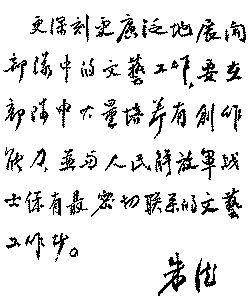 更深刻更广泛地展开
部隊中的文藝工作，要在
部隊中大量培养有創作
能力，並与人民解放軍战
士保有最密切联系的文藝
工作者。
朱德